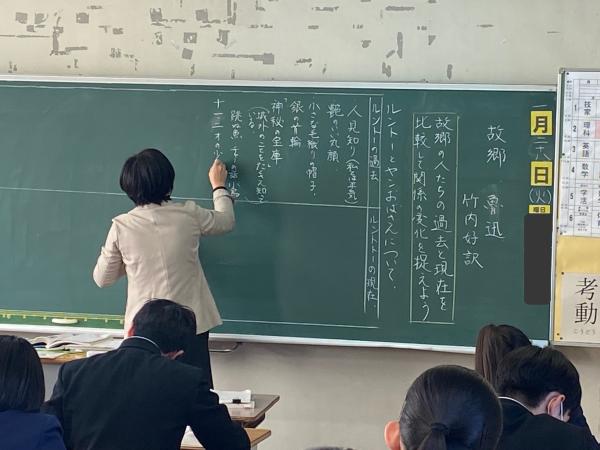 一月二八日(火)
曜日
故郷 魯迅
竹内好訳
故郷の人たちの過去と現在を
比較して関係の変化を捉えよう
ルントーとヤンおばさんについて、
ルントーの過去
ルントーの現在
人見知り(私は平気)
艶のいい丸顔
小さな毛織りの帽子、
銀の首輪
「神秘の宝庫」
十一二才の少
技家
理科
英語
数学
学活
1
2
3
4
5
6
考動
こうどう